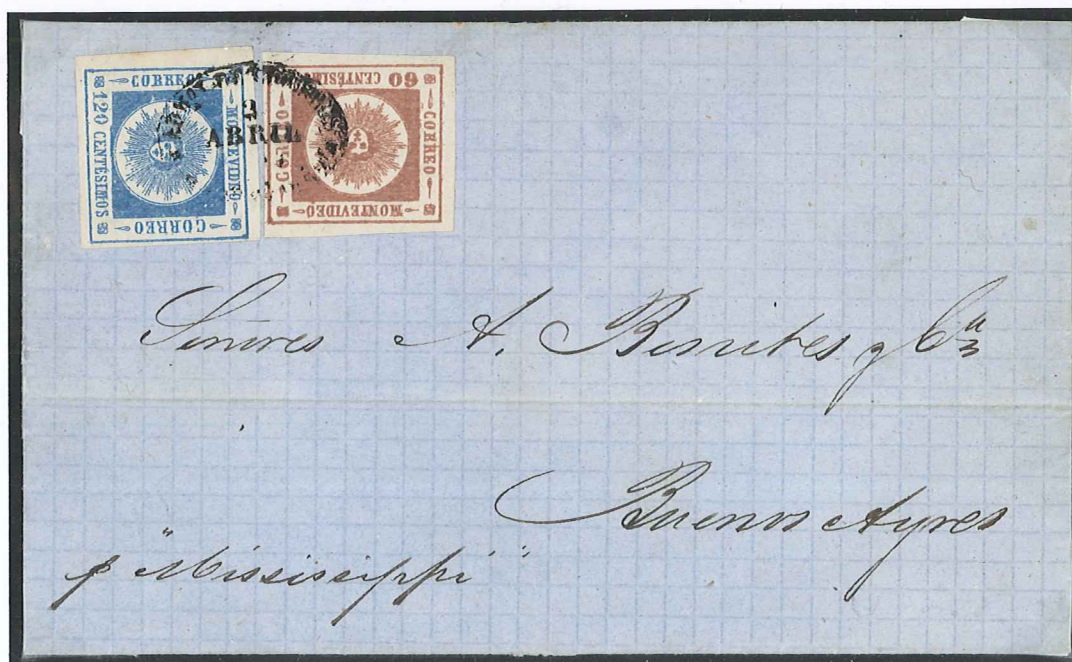 CORREO
120 CENTESIMOS
MONTEVIDEO
CORREO
60 CENTESIMOS
CORREO
MONTEVIDEO
CORREO
ABRIL
Señores A. Benites y Cia
Buenos Ayres
p "Mississippi"